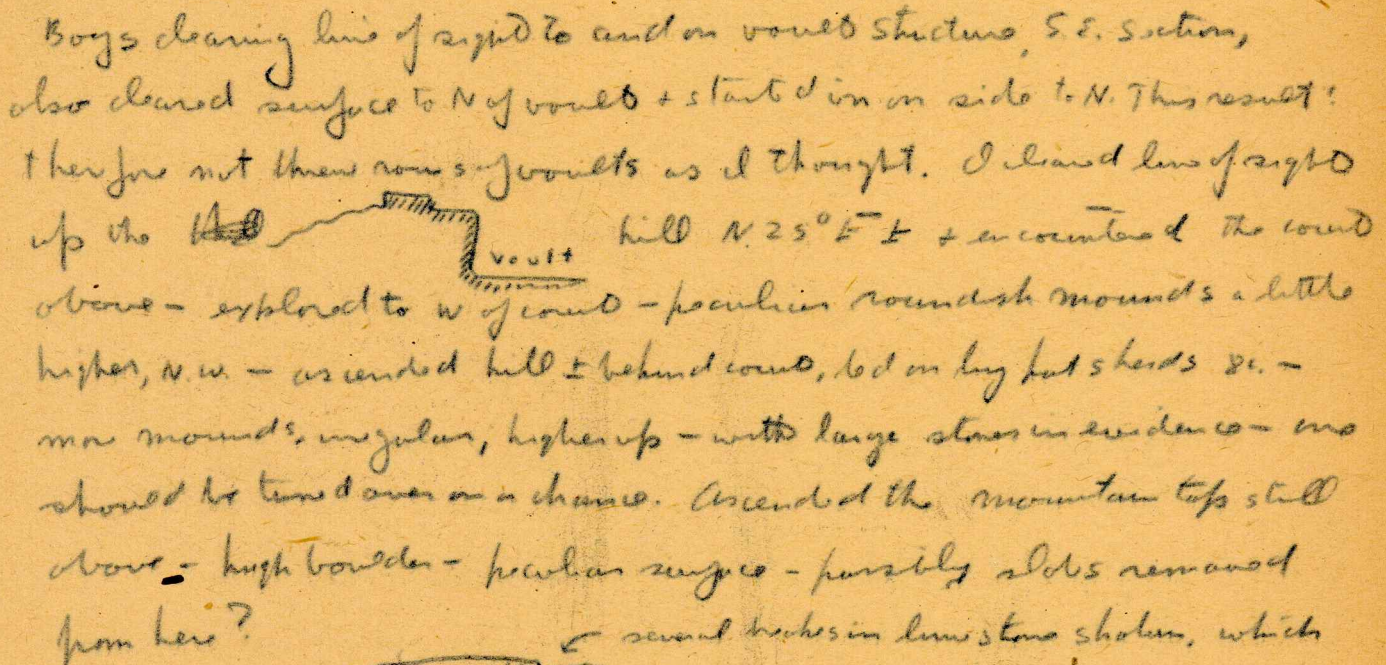 Boys clearing line of sight to and on vault structure, S.E. Section,
also cleared surface to N of vault + start'd in on side to N. This result:
therfore not three rows of vaults as I thought. I cleared line of sight
up the hill N. 25° E ± + encountered the court
vault
above – explored to W of court – peculiar roundish mounds a little
higher, N.W. – ascended hill ± behind court, led on by potsherds &c. –
more mounds, irregular, higher up – with large stones in evidence – one
should be turned over on a chance. Ascended the mountain top still
above – high boulder – peculiar surface – possibly slabs removed
from here?
several in limestone, which